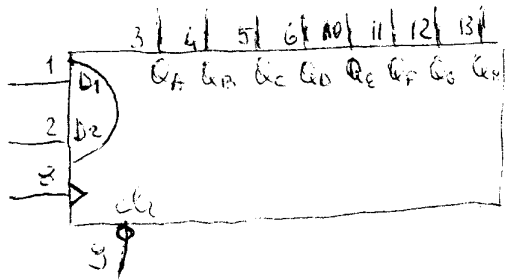 3 4 5 6 10 11 12 13
1 QA QB QC QD QE QF QG QH
D1
2 D2
8
Clr
9